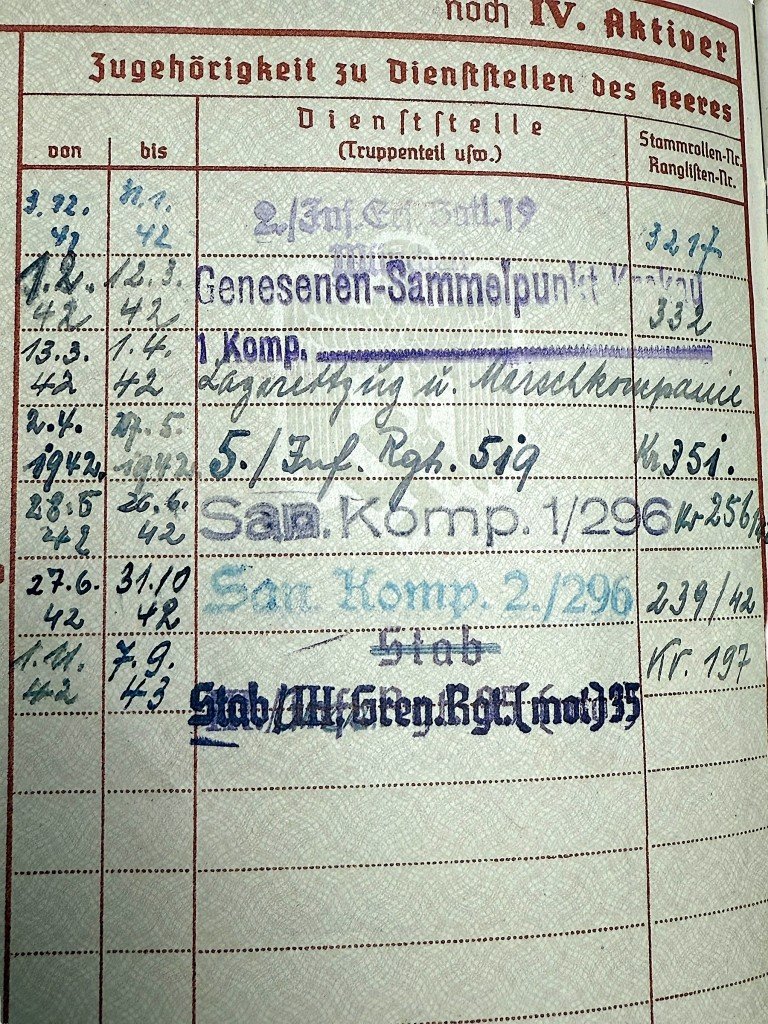 noch IV. Aktiver
Zugehörigkeit zu Dienststellen des Heeres
von
bis
Dienststelle
(Truppenteil usw.)
Stammrollen-Nr.
Ranglisten-Nr.
3.12. 41 31.1. 42 2./Inf.Ers.Batl.19 3217
1.2. 42 12.3. 42 Genesenen-Sammelpunkt Krakau 332
13.3. 42 1.4. 42 1 Komp.
Lazarettzug u. Marschkompanie
2.4. 1942. 27.5. 1942. 5./Inf. Rgt. 519 Kr. 351.
28.5 42 26.6. 42 San. Komp. 1/296 Kr 256
27.6. 42 31.10 42 San. Komp. 2./296 239/42
1.11. 42 7.9. 43 Stab Kr. 197
Stab/III. Gren.Rgt.(mot) 35